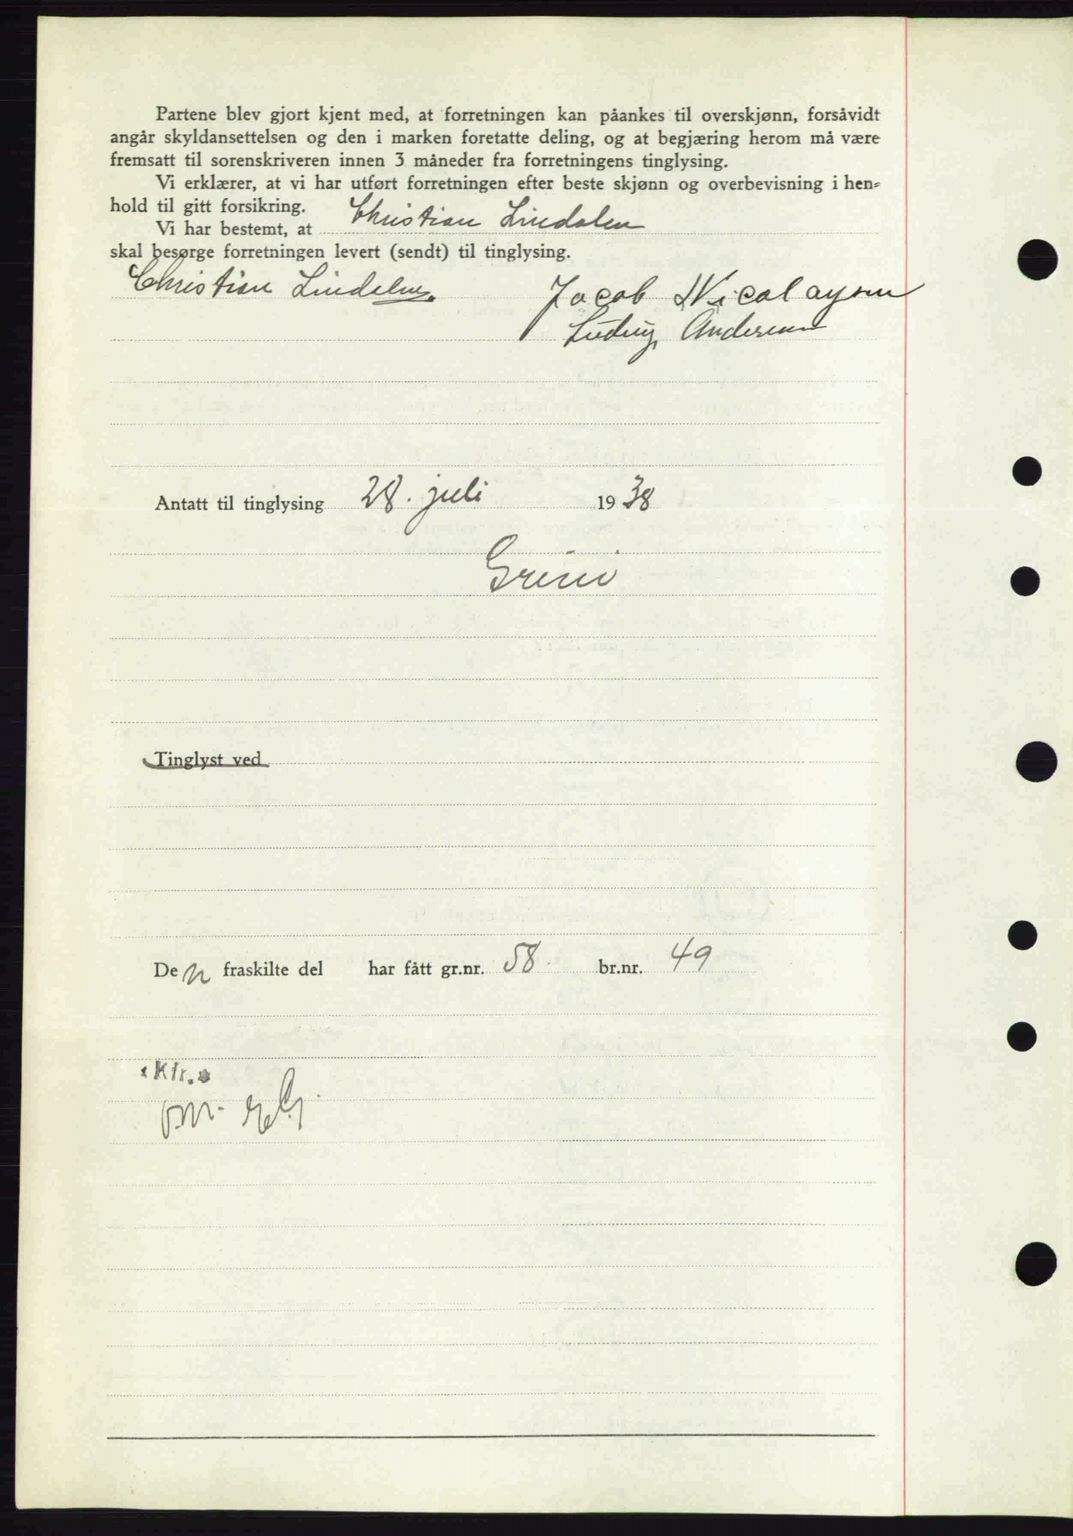 Partene blev gjort kjent med, at forretningen kan påankes til overskjønn, forsåvidt
angår skyldansettelsen og den i marken foretatte deling, og at begjæring herom må være
fremsatt til sorenskriveren innen 3 måneder fra forretningens tinglysing.
Vi erklærer, at vi har utført forretningen efter beste skjønn og overbevisning i hen-
hold til gitt forsikring.
Vi har bestemt, at Christian Lindalen
skal besørge forretningen levert (sendt) til tinglysing.
Christian Lindalen. Jacob Nicolaysen
Ludvig Andersen
Antatt til tinglysing 28. juli 1938
Grini
Tinglyst ved
De n fraskilte del har fått gr.nr. 58 br.nr. 49
Kfr.